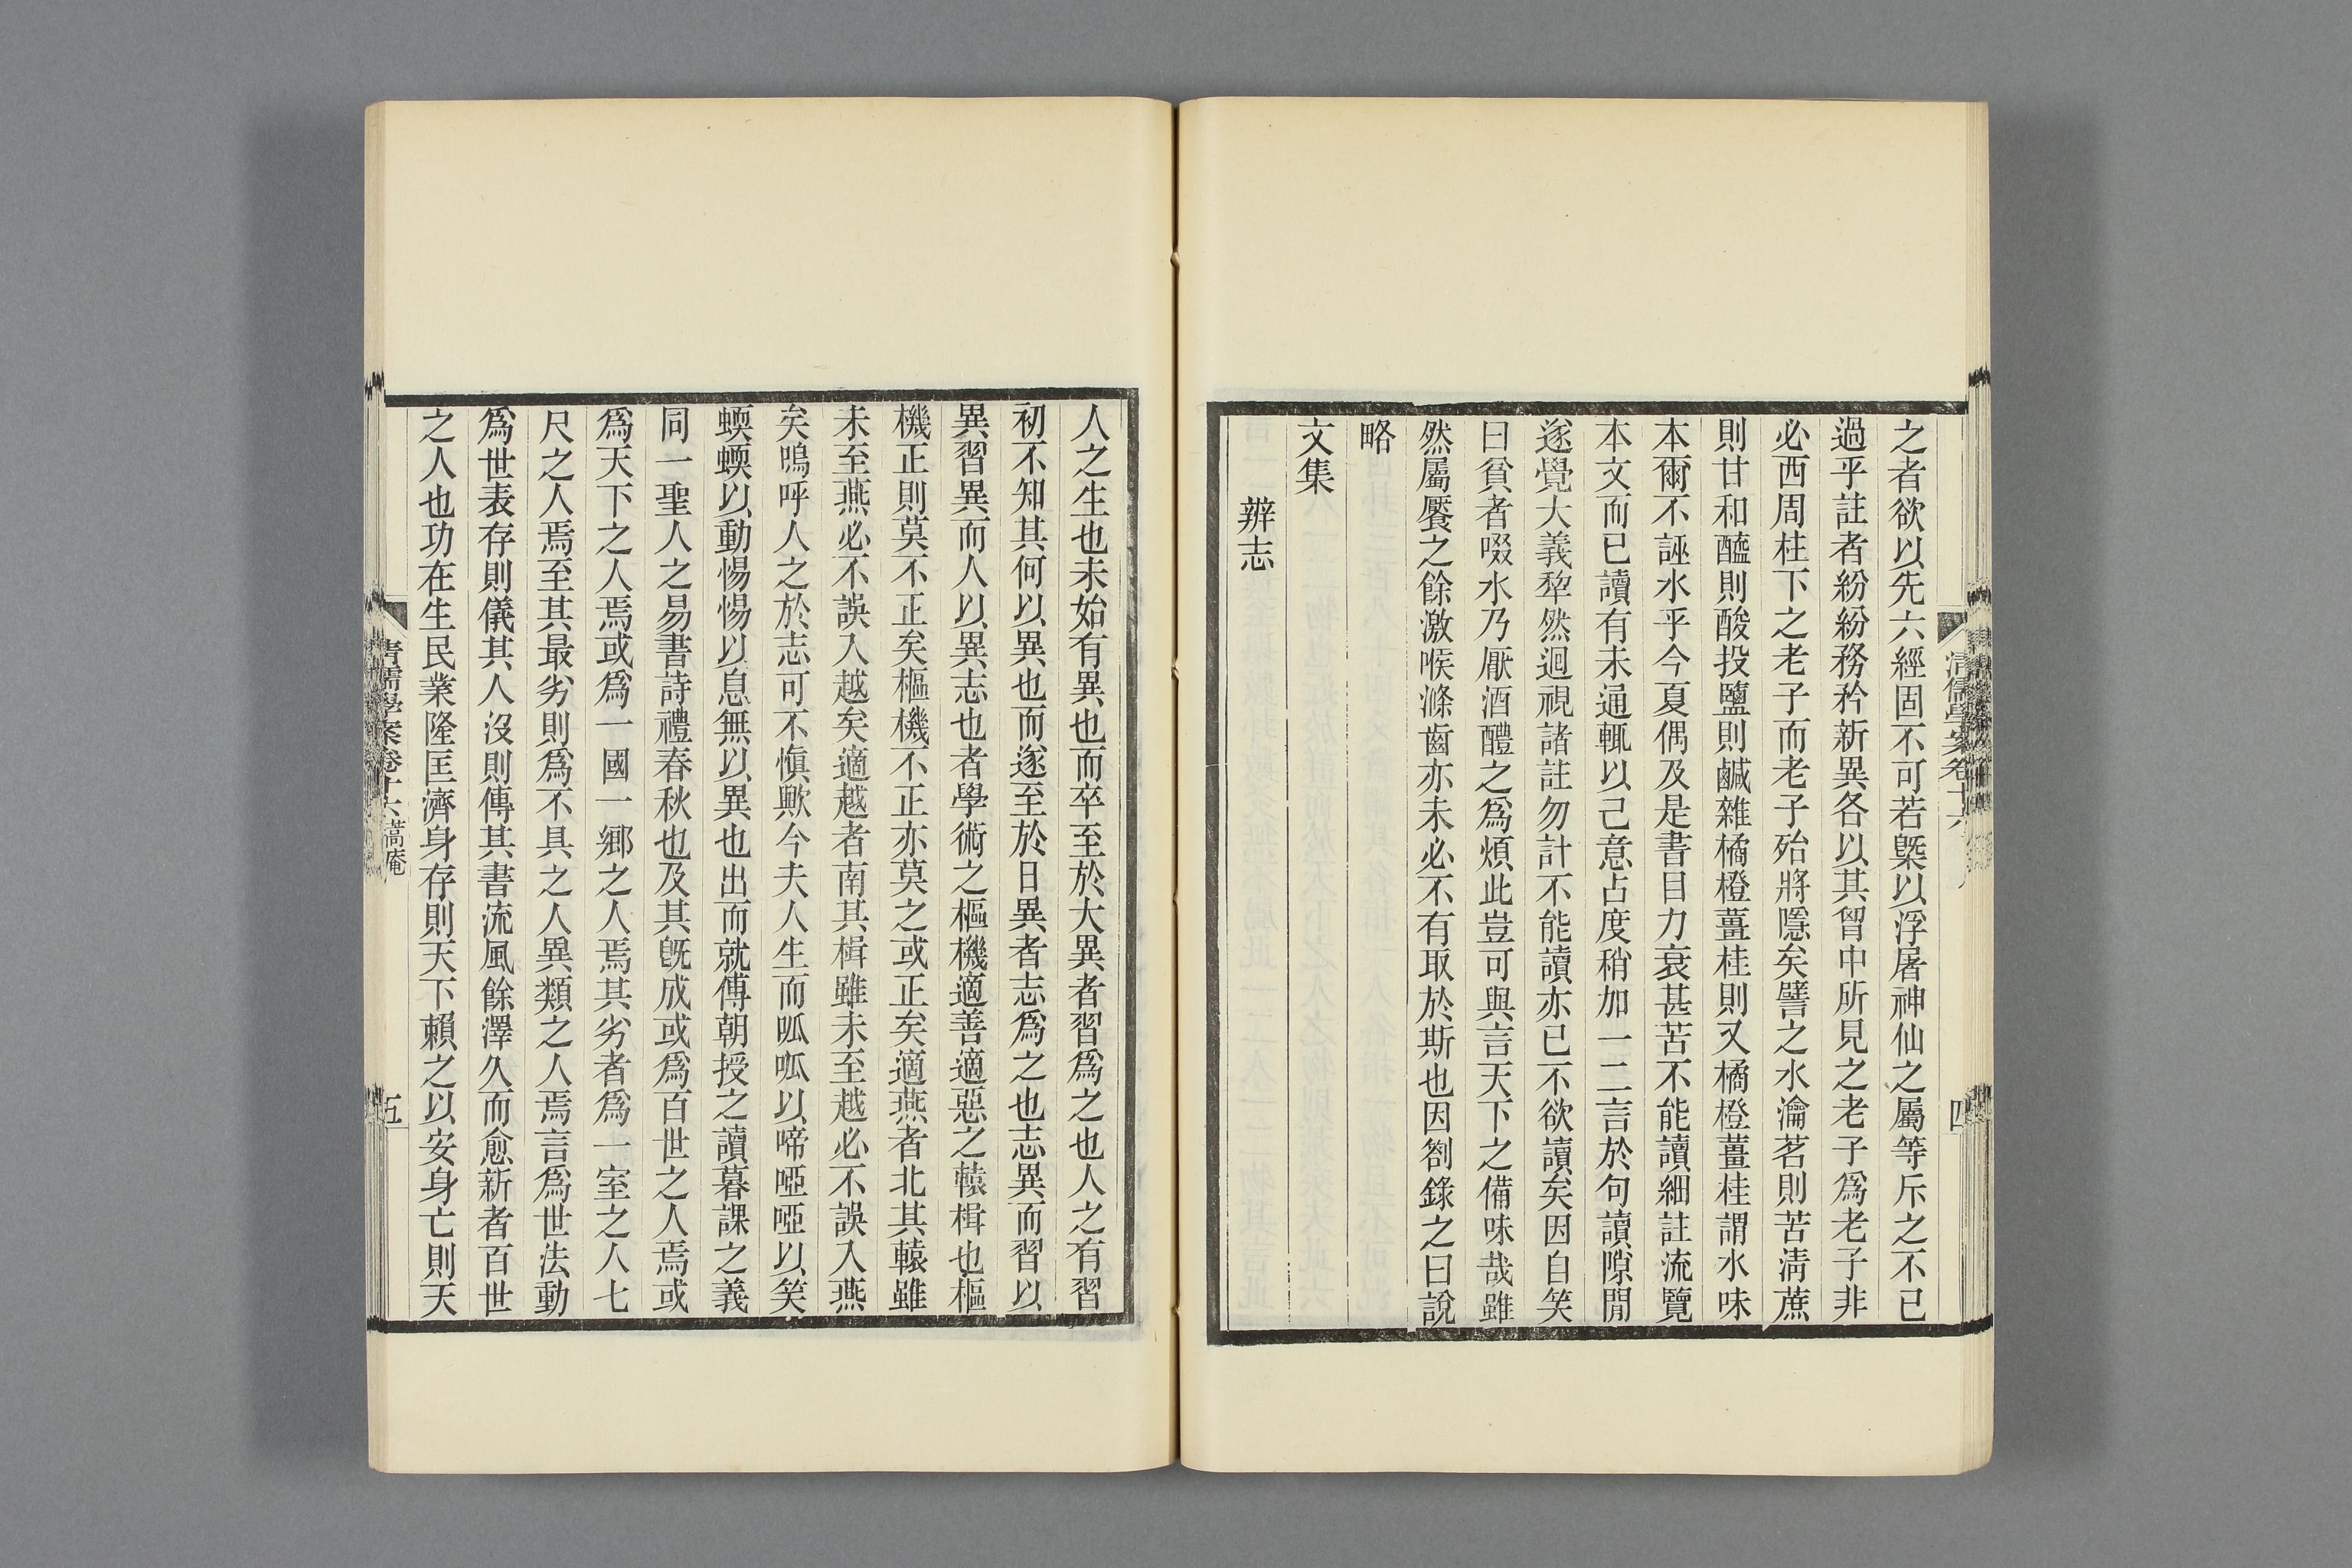 之者欲以先六經固不可若槩以浮屠神仙之屬等斥之不已
過乎註者紛紛務矜新異各以其胷中所見之老子爲老子非
必西周柱下之老子而老子殆將隱矣譬之水瀹茗則苦淸蔗
則甘和醯則酸投鹽則鹹雜橘橙薑桂則又橘橙薑桂謂水味
本爾不誣水乎今夏偶及是書目力衰甚苦不能讀細註流覽
本文而已讀有未通輒以己意占度稍加一二言於句讀隙閒
遂覺大義犂然迴視諸註勿計不能讀亦已不欲讀矣因自笑
曰貧者啜水乃厭酒醴之爲煩此豈可與言天下之備味哉雖
然屬饜之餘激喉滌齒亦未必不有取於斯也因劄錄之曰說
略
文集
辨志
清儒學案卷十六
四
人之生也未始有異也而卒至於大異者習爲之也人之有習
初不知其何以異也而遂至於日異者志爲之也志異而習以
異習異而人以異志也者學術之樞機適善適惡之轅楫也樞
機正則莫不正矣樞機不正亦莫之或正矣適燕者北其轅雖
未至燕必不誤入越矣適越者南其楫雖未至越必不誤入燕
矣嗚呼人之於志可不愼歟今夫人生而呱呱以啼啞啞以笑
蝡蝡以動惕惕以息無以異也出而就傅朝授之讀暮課之義
同一聖人之易書詩禮春秋也及其旣成或爲百世之人焉或
爲天下之人焉或爲一國一鄉之人焉其劣者爲一室之人七
尺之人焉至其最劣則爲不具之人異類之人焉言爲世法動
爲世表存則儀其人沒則傳其書流風餘澤久而愈新者百世
之人也功在生民業隆匡濟身存則天下賴之以安身亡則天
清儒學案卷十六 蒿庵
五